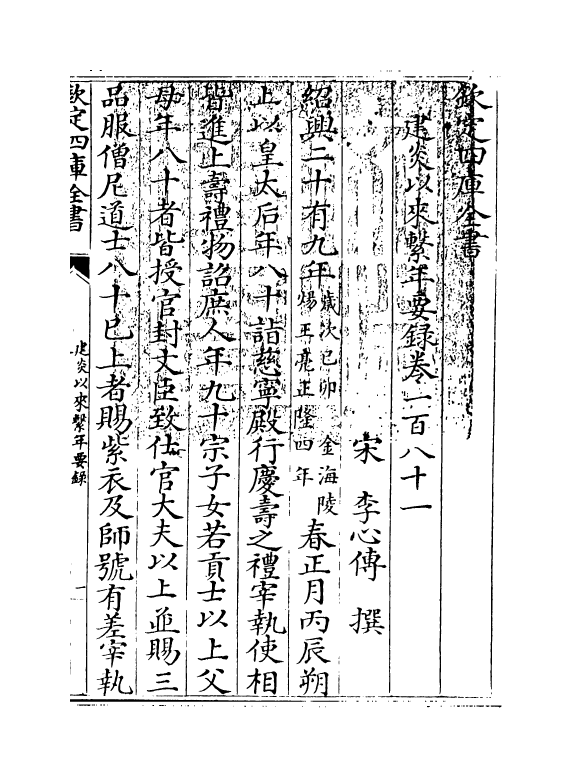 欽定四庫全書
建炎以來繫年要錄卷一百八十一
宋 李心傳 撰
紹興二十有九年歲次己卯金海陵煬王亮正隆四年春正月丙辰朔
上以皇太后年八十詣慈寧殿行慶壽之禮宰執使相
皆進上壽禮物詔庶人年九十宗子女若貢士以上父
母年八十者皆授官封文臣致仕官大夫以上並賜三
品服僧尼道士八十已上者賜紫衣及師號有差宰執
欽定四庫全書
建炎以來繫年要錄
一